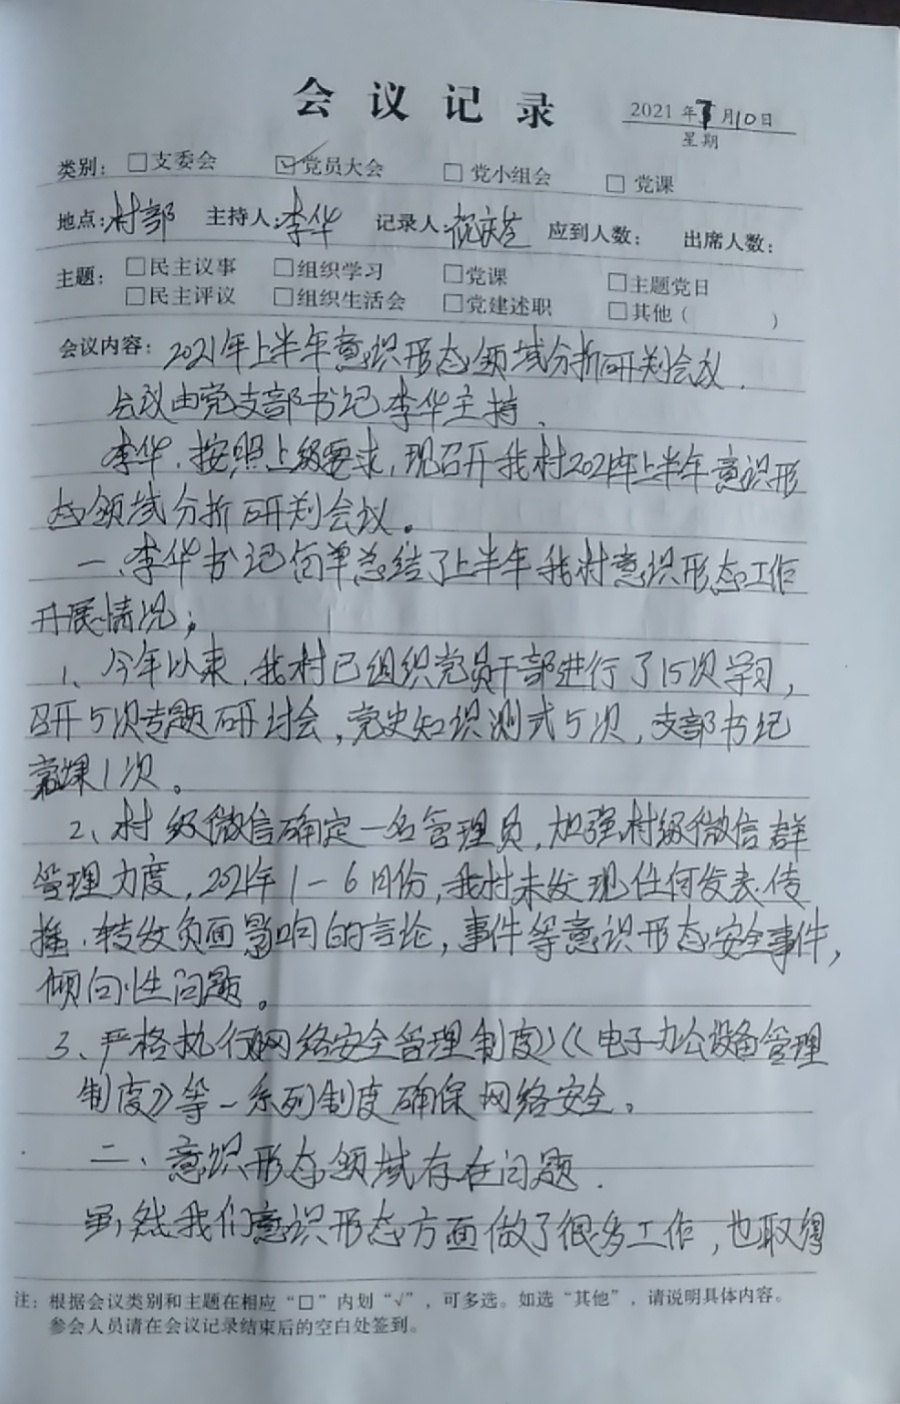 会议记录
2021年 月10日
星期
类别： □支委会 ☑党员大会 □党小组会 □党课
地点：村部 主持人：李华 记录人： 应到人数： 出席人数：
主题： □民主议事 □组织学习 □党课 □主题党日
□民主评议 □组织生活会 □党建述职 □其他（ ）
会议内容：2021年上半年意识形态领域分析研判会议.
会议由党支部书记李华主持.
李华.按照上级要求,现召开我村2021年上半年意识形
态领域分析研判会议。
一、李华书记简单总结了上半年我村意识形态工作
开展情况;
1、今年以来,我村已组织党员干部进行了15次学习,
召开5次专题研讨会,党史知识测式5次,支部书纪
党课1次。
2、村级微信确定一名管理员,加强村级微信群
管理力度,2021年1-6月份,我村未发现任何发表.传
播.转发负面影响的言论,事件等意识形态安全事件,
倾向性问题。
3、严格执行网络安全管理制度》《电子办公设备管理
制度》等一系列制度确保网络安全。
二、意识形态领域存在问题.
虽然我们意识形态方面做了很多工作,也取得
注：根据会议类别和主题在相应“□”内划“√”，可多选。如选“其他”，请说明具体内容。
参会人员请在会议记录结束后的空白处签到。